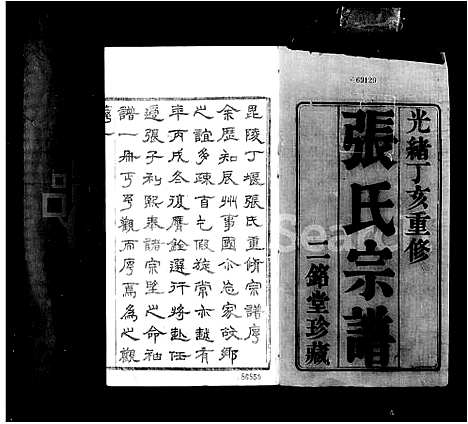 69129
光緒丁亥重修
張氏宗譜
二銘堂珍藏
毘陵丁堰張氏重修宗譜序
余歷知辰州事國尒忘家故鄉
之誼多疎首乞假旋常亦越有
年丙戌冬復膺銓選行將赴任
適張子利熙奉諸宗望之命袖
譜一冊丐予觀而序焉為之觀